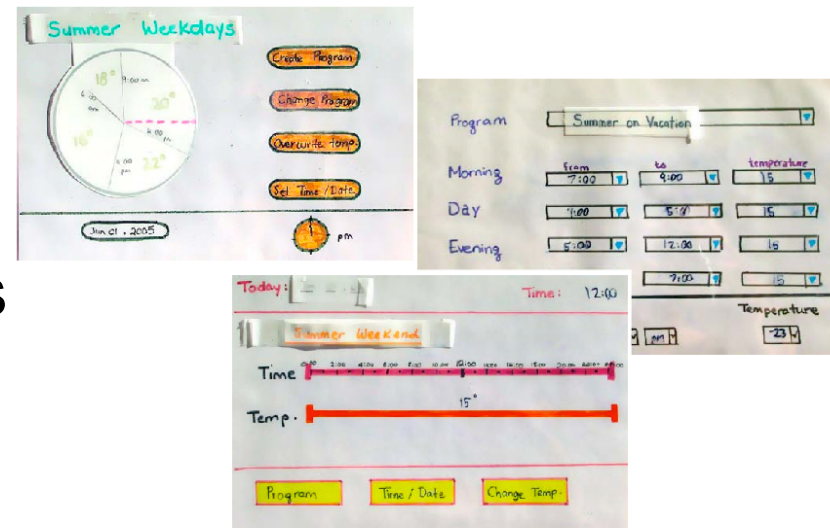 Summer Weekdays
18° 9:00 am
20°
6:00 am
4:00 pm
18°
6:00 pm
22°
Create Program
Change Program
Overwrite temp.
Set Time/Date
Jun 01, 2005
pm
Program Summer on Vacation
from to temperature
Morning 7:00 9:00 15
Day 9:00 5:00 15
Evening 5:00 12:00 15
7:00 15
Temperature
pm -23
s
Today:
Time: 12:00
Summer Weekend
Time 2:00 4:00 6:00 8:00 10:00 12:00
15°
Temp.
Program Time / Date Change Temp.